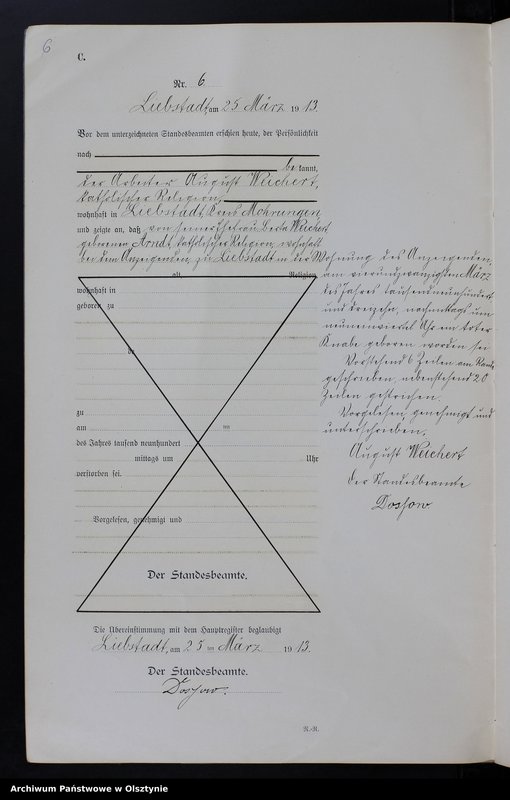 6
C.
Nr. 6
Liebstadt, am 25 März 1913.
Vor dem unterzeichneten Standesbeamten erschien heute, der Persönlichkeit
nach
be kannt,
der Arbeiter August Weichert,
katholischer Religion,
wohnhaft in Liebstadt, Kreis Mohrungen
und zeigte an, daß von seiner Ehefrau Berta Weichert
geborenen Arndt, katholischer Religion, wohnhaft
bei dem Anzeigenden, zu Liebstadt in der Wohnung des Anzeigenden,
am vierundzwanzigsten März
des Jahres tausendneunhundert
und dreizehn, nachmittags um
neuneinviertel Uhr ein toter
Knabe geboren worden sei
Vorstehend 6 Zeilen am Rande
geschrieben, nebenstehend 20
Zeilen gestrichen.
Vorgelesen, genehmigt und
unterschrieben.
August Weichert
Der Standesbeamte
Dossow
alt, Religion,
wohnhaft in
geboren zu
zu
am ten
des Jahres tausend neunhundert
mittags um Uhr
verstorben sei.
Vorgelesen, genehmigt und
Der Standesbeamte.
Die Übereinstimmung mit dem Hauptregister beglaubigt
Liebstadt, am 25 ten März 1913.
Der Standesbeamte.
Dossow.
R.-R.
Archiwum Państwowe w Olsztynie